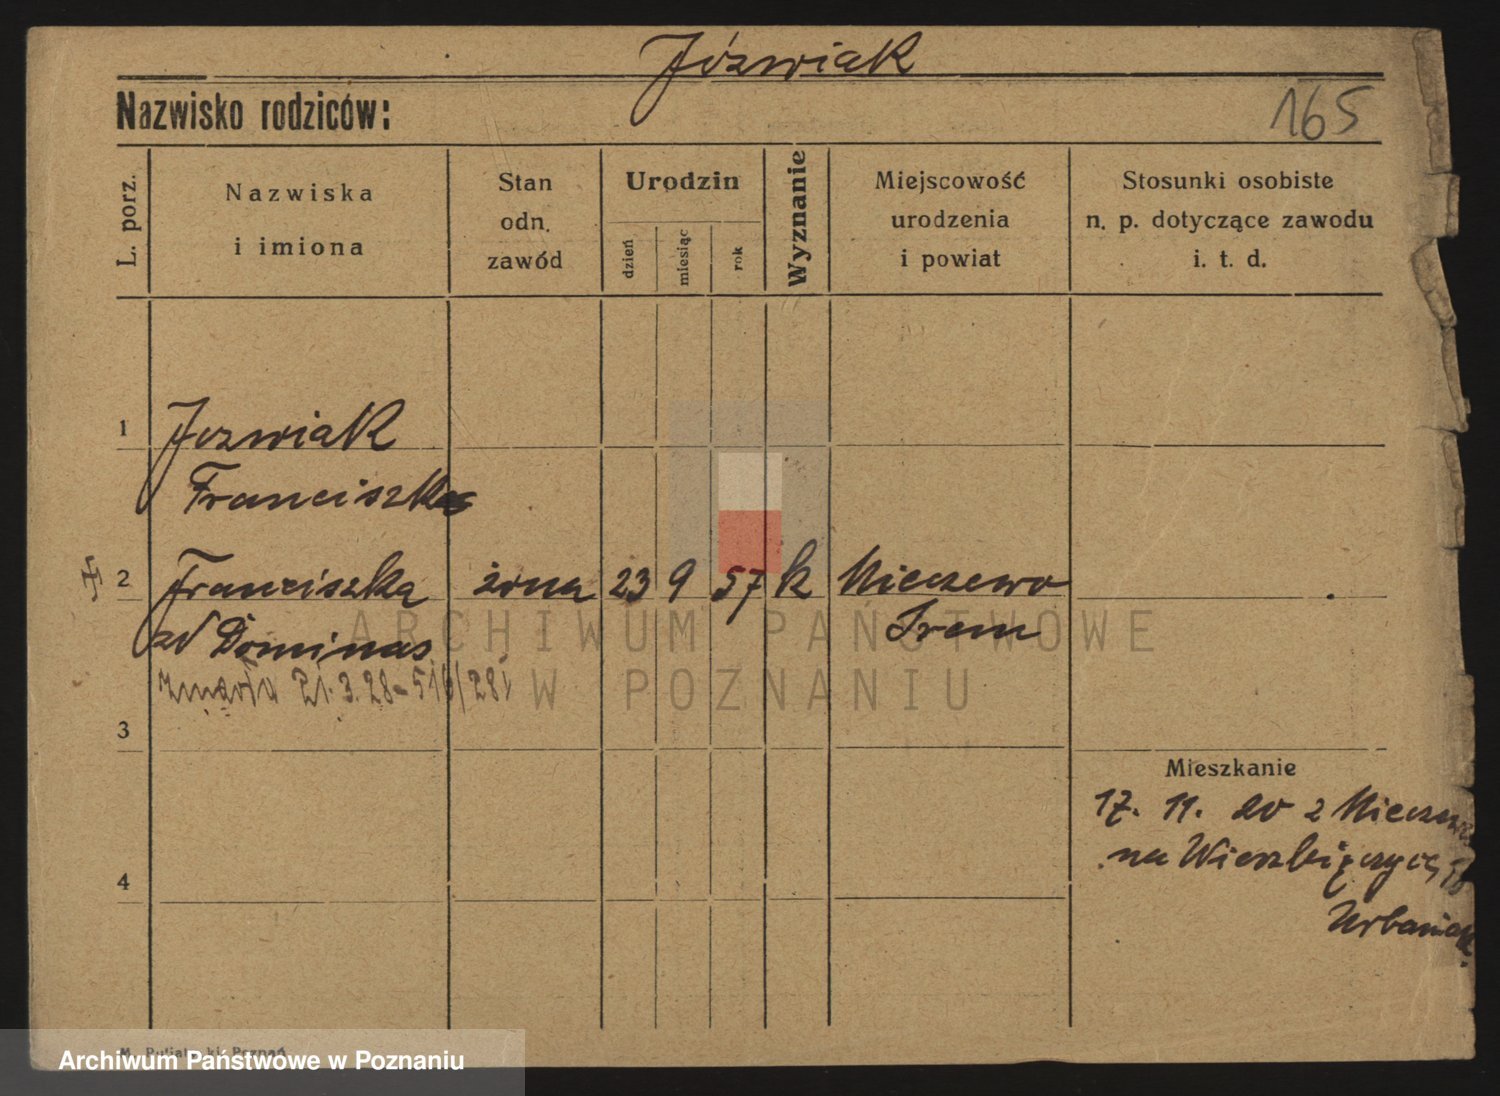 Józwiak
Nazwisko rodziców:
165
L. porz.
Nazwiska
i imiona
Stan
odn.
zawód
Urodzin
dzień
miesiąc
rok
Wyznanie
Miejscowość
urodzenia
i powiat
Stosunki osobiste
n. p. dotyczące zawodu
i. t. d.
1
Jozwiak
Franciszka
2
Franciszka żona 23 9 57 k Mieczewo
zd Dominas Śrem
zmarła 21.3.28 - 516/28
3
Mieszkanie
17. 11. 20 z Mieczewa
na Wierzbięcycą
4
Urbaniak
ARCHIWUM PAŃSTWOWE
W POZNANIU
Archiwum Państwowe w Poznaniu